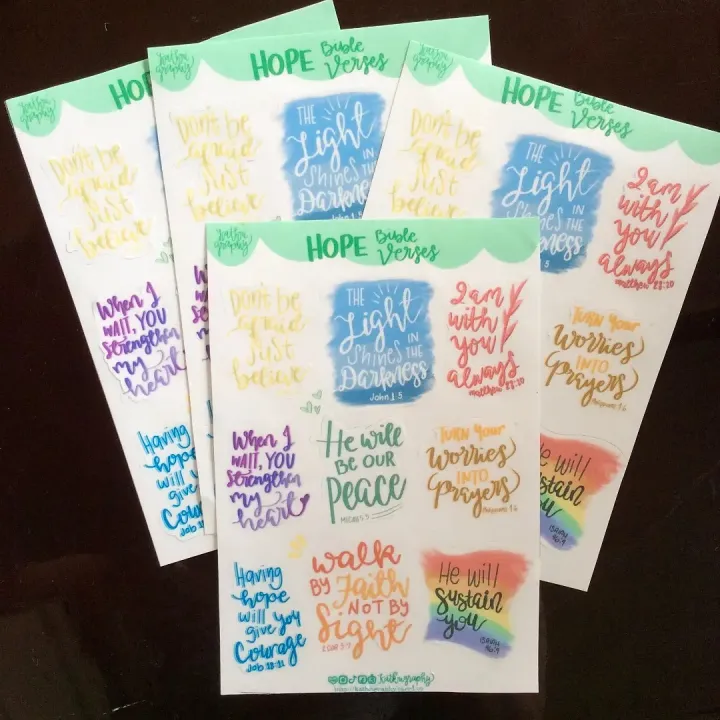 HOPE Bible
Verses
Don't be
afraid
Just
believe
THE
Light
Shines IN
THE
Darkness
John 1:5
I am
with
you
always
matthew 28:20
When I
WAIT, YOU
Strengthen
my
heart
He will
BE OUR
Peace
MICAH 5:5
TURN Your
Worries
INTO
Prayers
Having
hope
will
give you
Courage
Job 11:18
walk
BY Faith
NOT BY
Sight
2 COR 5:7
He will
Sustain
you
ISAIAH
46:4
HOPE Bible
Verses
Don't be
afraid
Just
believe
THE
Light
Shines IN
THE
Darkness
HOPE Bible
Verses
Don't be
afraid
Just
believe
THE
Light
Shines IN
THE
Darkness
I am
with
you
always
matthew 28:20
TURN Your
Worries
INTO
Prayers
He will
Sustain
you
ISAIAH
46:4
HO
Don't be
afraid
Just
believe
When I
WAIT, YOU
Strengthen
my
heart
Having
hope
will
give
Cou